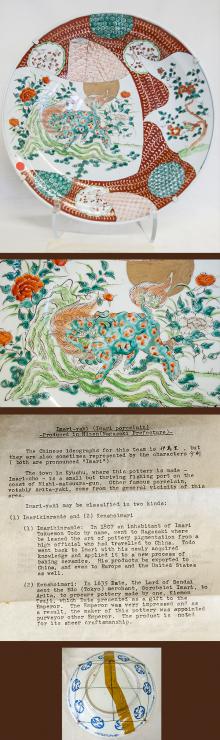 Imari-yaki (Imari porcelain)
-Produced in Hizen(Nagasaki Prefecture)-
The Chinese ideographs for this team is 伊萬里, but
they are also sometimes represented by the characters
( both are pronounced "Imari".
The town in Kyushu, where this pottery is made -
Imari-cho - is a small but thriving fishing port on the
coast of Nishi-matsuura-gun. Other famous porcelain,
notably Arita-yaki, come from the general vicinity of this
area.
Imari-yaki may be classified in two kinds:
(1) Imarihinrade and (2) Kenzhoimari.
(1) Imarihinrade: In 1807 an inhabitant of Imari
Tokuemon Todo by name, went to Nagasaki where
he leaned the art of pottery pigmentation from a
high official who had travelled to China. Todo
went back to Imari with his newly acquired
knowledge and applied it to a new process of
baking ceramics. His products he exported to
China, and even to Europe and the United States
as well.
(2) Kenzhoimari: In 1639 Date, the Lord of Sendai
sent the Edo (Tokyo) merchant, Gorobeiei Imari, to
Arita, to prepare pottery made by one, Kiemon
Tsuji, which Date presented as a gift to the
Emperor. The Emperor was very impressed and as
a result, the maker of this pottery was appointed
purveyor other Emperor. The product is noted
for its sheer craftsmanship.